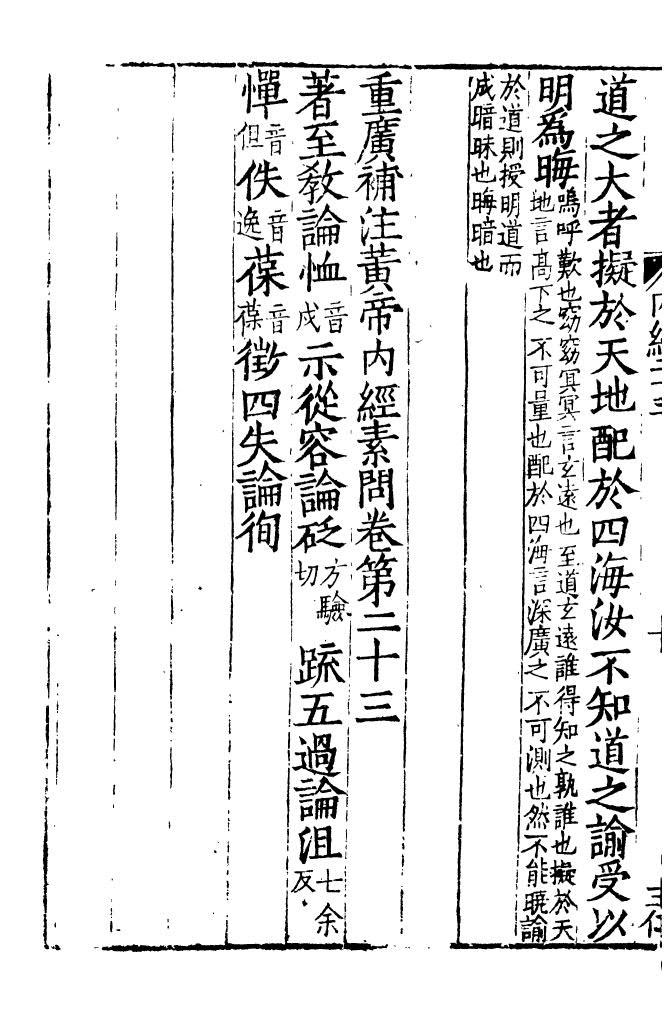 道之大者擬於天地配於四海汝不知道之諭受以
明爲晦嗚呼歎也窈窈冥冥言玄遠也至道玄遠誰得知之孰誰也擬於天
地言高下之不可量也配於四海言深廣之不可測也然不能曉諭
於道則授明道而
成暗昧也晦暗也
重廣補注黃帝內經素問卷第二十三
著至教論恤音戍示從容論砭方驗切疏五過論沮七余反
憚音但佚音逸葆音葆徵四失論徇
內經二十三